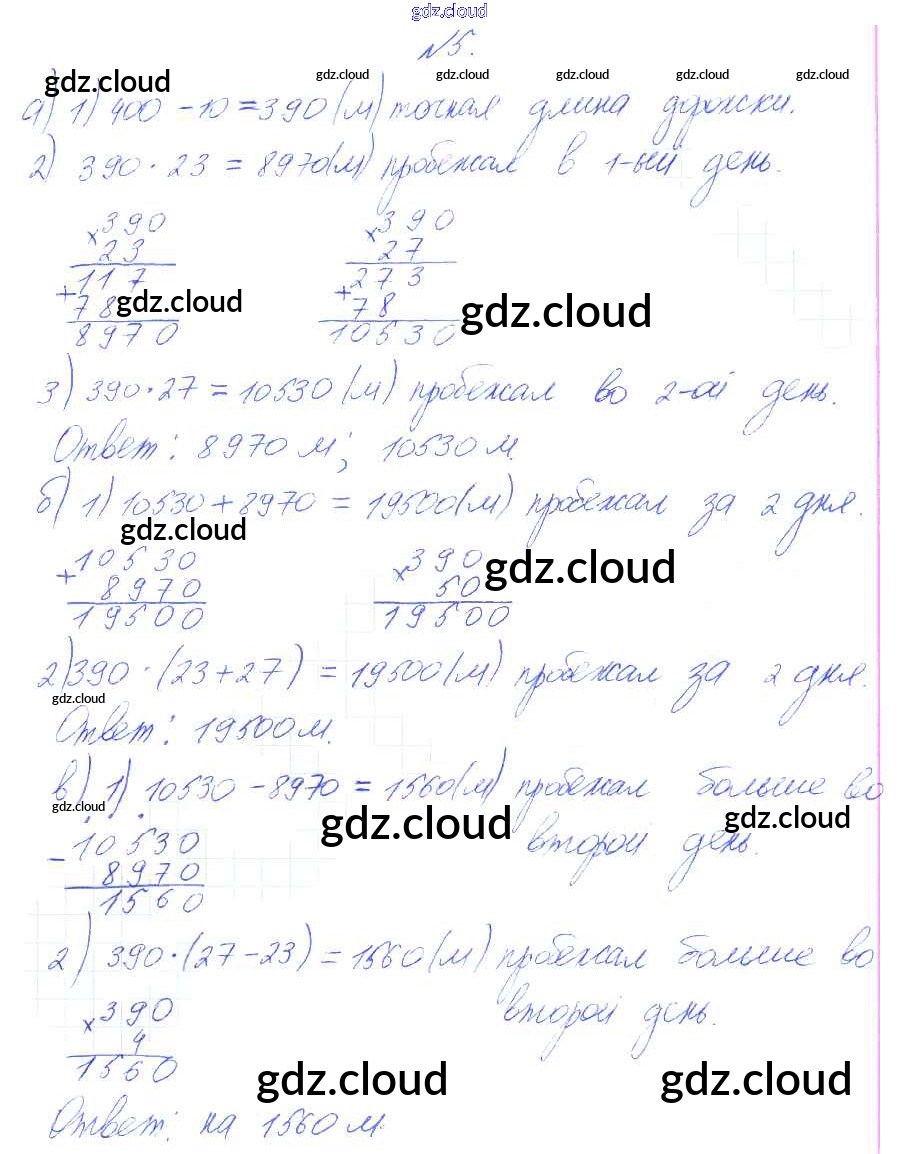 gdz.cloud
№5.
gdz.cloud gdz.cloud gdz.cloud gdz.cloud gdz.cloud
а) 1) 400 - 10 = 390 (м) точная длина дорожки.
2) 390 · 23 = 8970(м) пробежал в 1-ый день.
× 390 × 390
23 27
117 273
+ 78 + 78
gdz.cloud gdz.cloud
8970 10530
3) 390 · 27 = 10530 (м) пробежал во 2-ой день.
Ответ: 8970 м; 10530 м.
б) 1) 10530 + 8970 = 19500(м) пробежал за 2 дня.
gdz.cloud gdz.cloud
+ 10530 × 390
8970 50
19500 19500
2) 390 · (23 + 27) = 19500 (м) пробежал за 2 дня.
gdz.cloud
Ответ: 19500 м.
в) 1) 10530 - 8970 = 1560 (м) пробежал больше во
gdz.cloud gdz.cloud gdz.cloud
второй день.
- 10530
8970
1560
2) 390 · (27 - 23) = 1560 (м) пробежал больше во
второй день.
× 390
4
1560
gdz.cloud gdz.cloud
Ответ: на 1560 м.